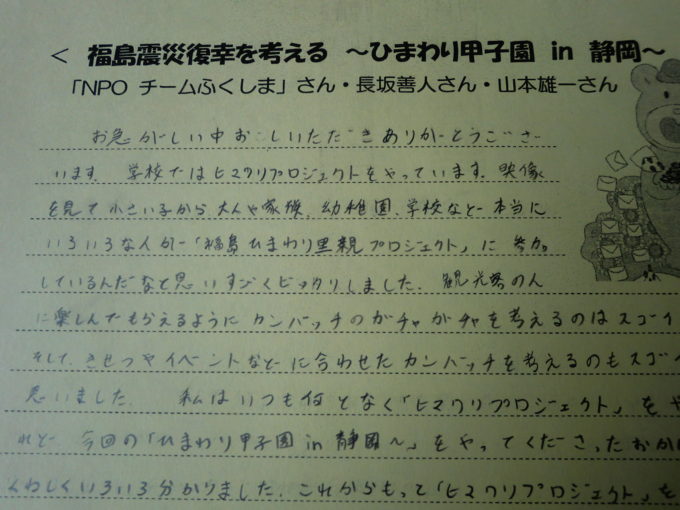 < 福島震災復幸を考える ～ひまわり甲子園 in 静岡～
「NPO チームふくしま」さん・長坂善人さん・山本雄一さん
お急がしい中おこしいただきありがとうござ
います。学校ではヒマワリプロジェクトをやっています。映像
を見て小さい子から大人や家族、幼稚園、学校など本当に
いろいろな人が「福島ひまわり里親プロジェクト」に参加
しているんだなと思いすごくビックリしました。観光客の人
に楽しんでもらえるようにカンバッチのガチャガチャを考えるのはスゴイ
そして、きせつやイベントなどに合わせたカンバッチを考えるのもスゴイ
思いました。 私はいつも何となく「ヒマワリプロジェクト」をや
れど、今回の「ひまわり甲子園in静岡～」をやってくださったおか
くわしくいろいろ分かりました。これからもって「ヒマワリプロジェクト」を